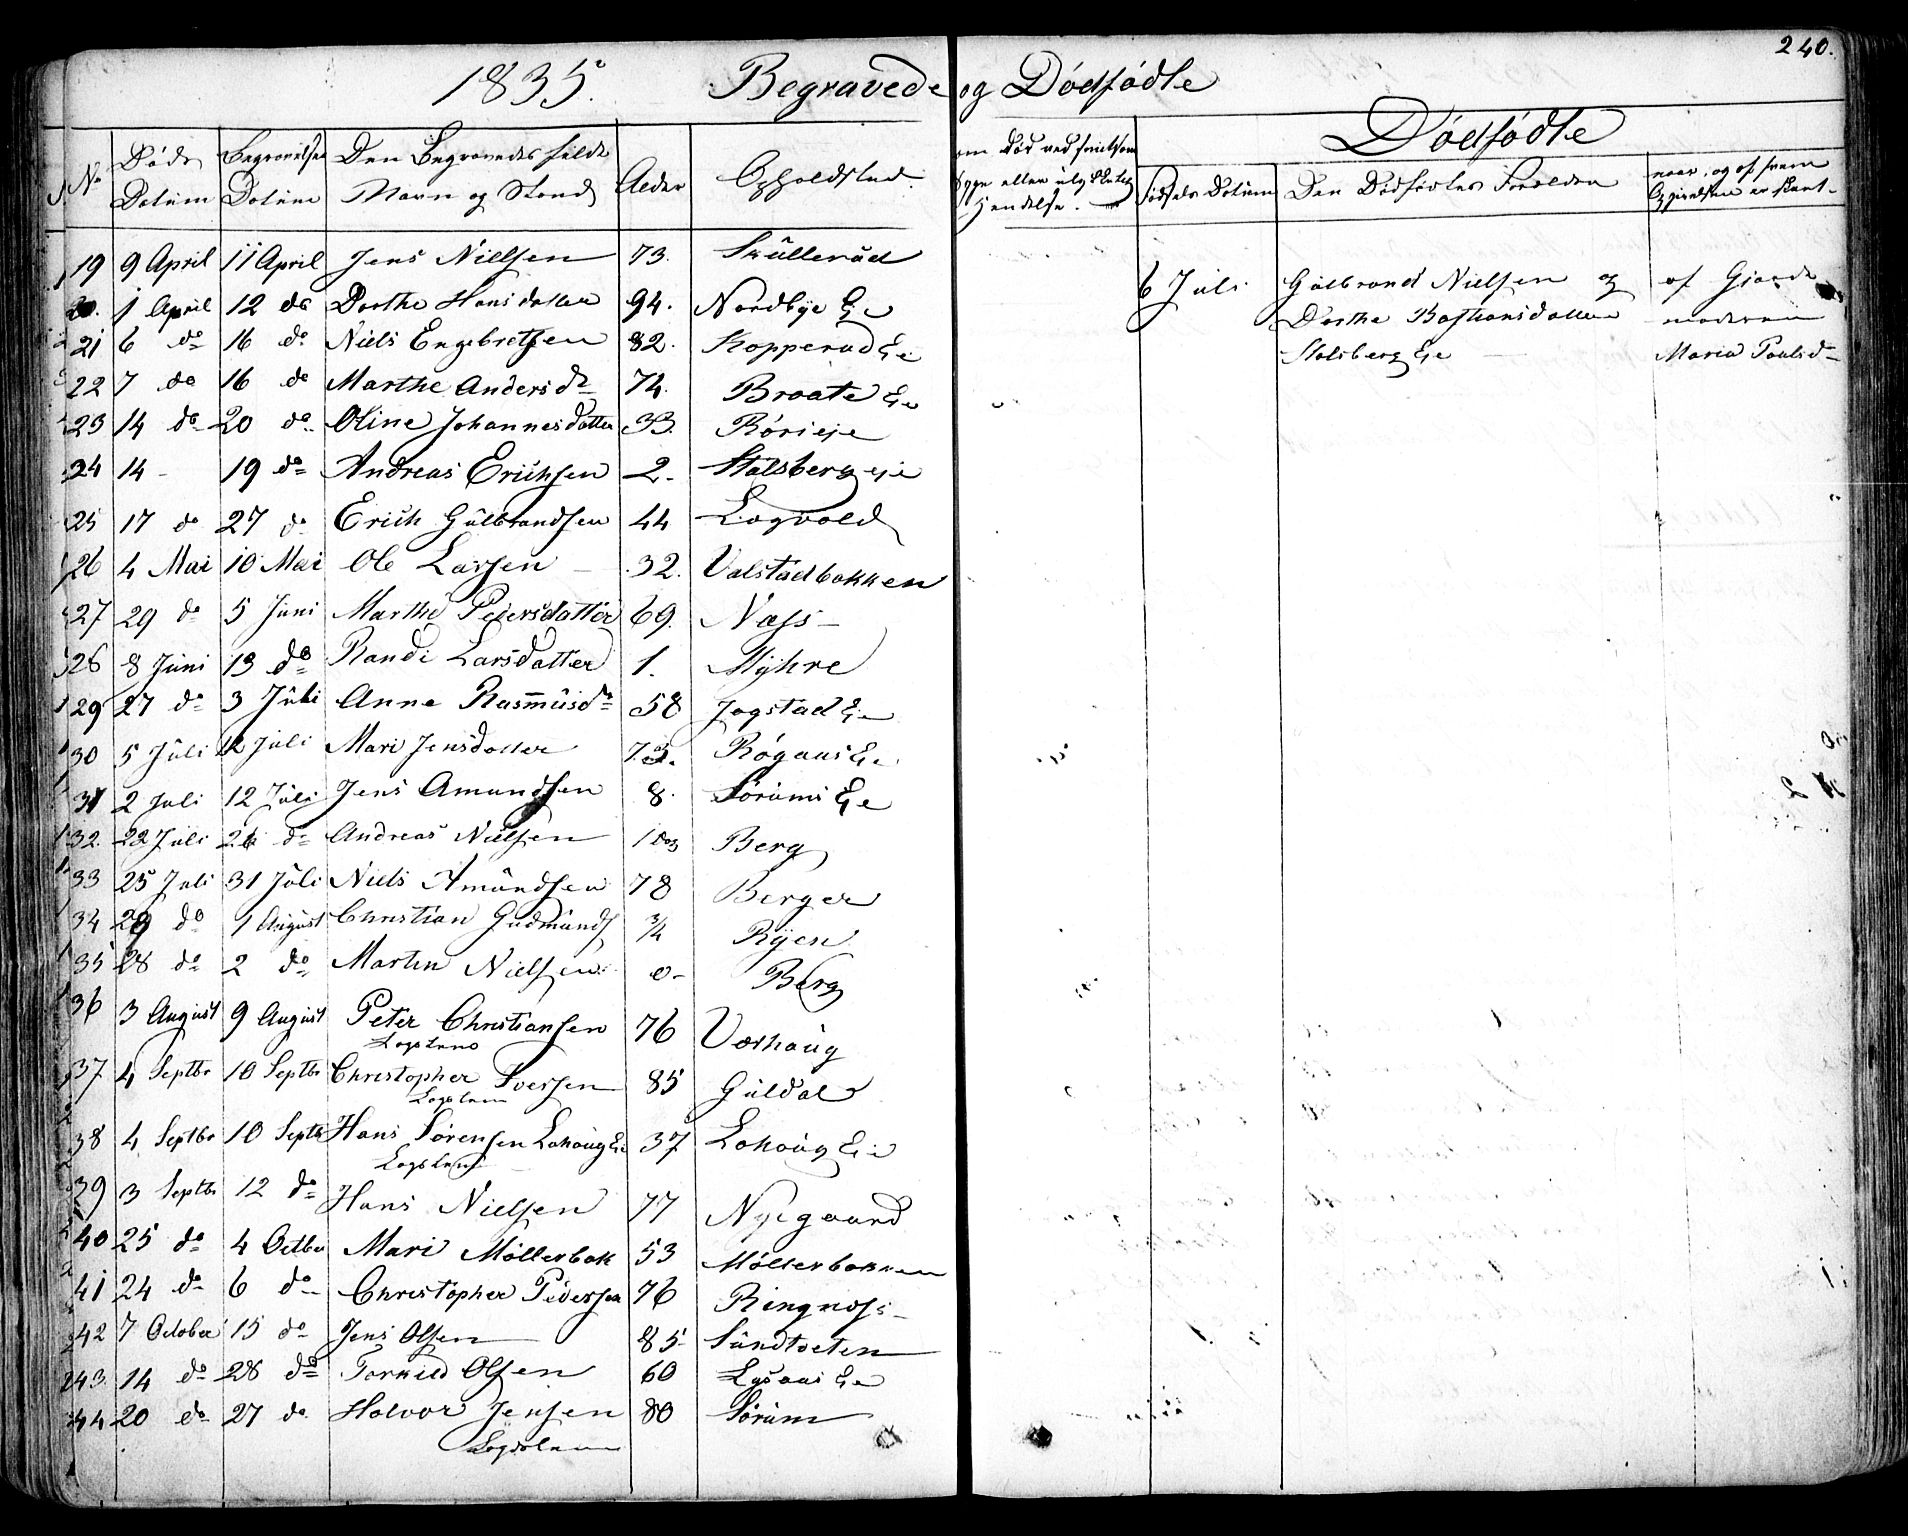 240.
1835. Begravede og Dødfødte
No Døds Datum Begravelses Datum Den Begravedes fulde Navn og Stand Alder Opholdsted.
om Død ved smitsom Syge eller ulyk Hendelse.
Dødfødte
Fødsels Datum Den Dødfødtes Forældre naar, og af hvem
19 9 April 11 April Jens Nielsen 73. Skullerud
20. 1 April 12 do Dorthe Hansdatter 94. Nordbye Eie
21 6 do 16 do Niels Engebretsen 82. Kopperud Eie
22 7 do 16 do Marthe Andersdr 74. Braate Eie
23 14 do 20 do Oline Johannesdatter 33. Rørieje
24 14 - 19 do Andreas Erichsen 2- Stalsberg eie
25 17 do 27 do Erich Gulbrandsen 44 Logvold
26 4 Mai 10 Mai Ole Larsen 32. Valstadbakken
27 29 do 5 Juni Marthe Petersdatter 69. Næss
28 8 Juni 13 do Randi Larsdatter 1. Myhre
29 27 do 3 Juli Anne Rasmusdr 58 Jogstad Eie
30 5 Juli 12 Juli Mari Jensdatter Røgaas Eie
31 2 Juli 12 Juli Jens Amundsen 8. Sørums Eie
32. 22 Juli 26 do Andreas Nielsen 1 dag Berg
33 25 Juli 31 Juli Niels Amundsen 78 Berger
34 29 do 1 August Christian Gudmunds 3/4 Ryen
35 28 do 2 do Martin Nielsen 0- Berg
36 3 August 9 August Peter Christiansen 76 Værhaug
Logslem
37 4 Septbr 10 Septbr Christopher Iversen 85 Guldal
Logslem
38 4 Septbr 10 Septbr Hans Sørensen Lohoug Eie 37 Lohoug Eie
Logslem
39 3 Septbr 12 do Hans Nielsen 77 Nyegaard
40 25 do 4 Octbr Mari Møllerbak 53 Møllerbakken
41 24 do 6 do Christopher Pedersen 76 Ringnæss
42 7 October 15 do Jens Olsen 85- Sundtoeten
43. 14 do 28 do Torkild Olsen 60 Lysaas Eie
44 20 do 27 do Halvor Jensen 80 Sørum
Logslem
6 Juli. Gulbrand Nielsen og af Giorde
Dorthe Bastiansdatter moderen
Stalsberg Eie Maria Paulsdr